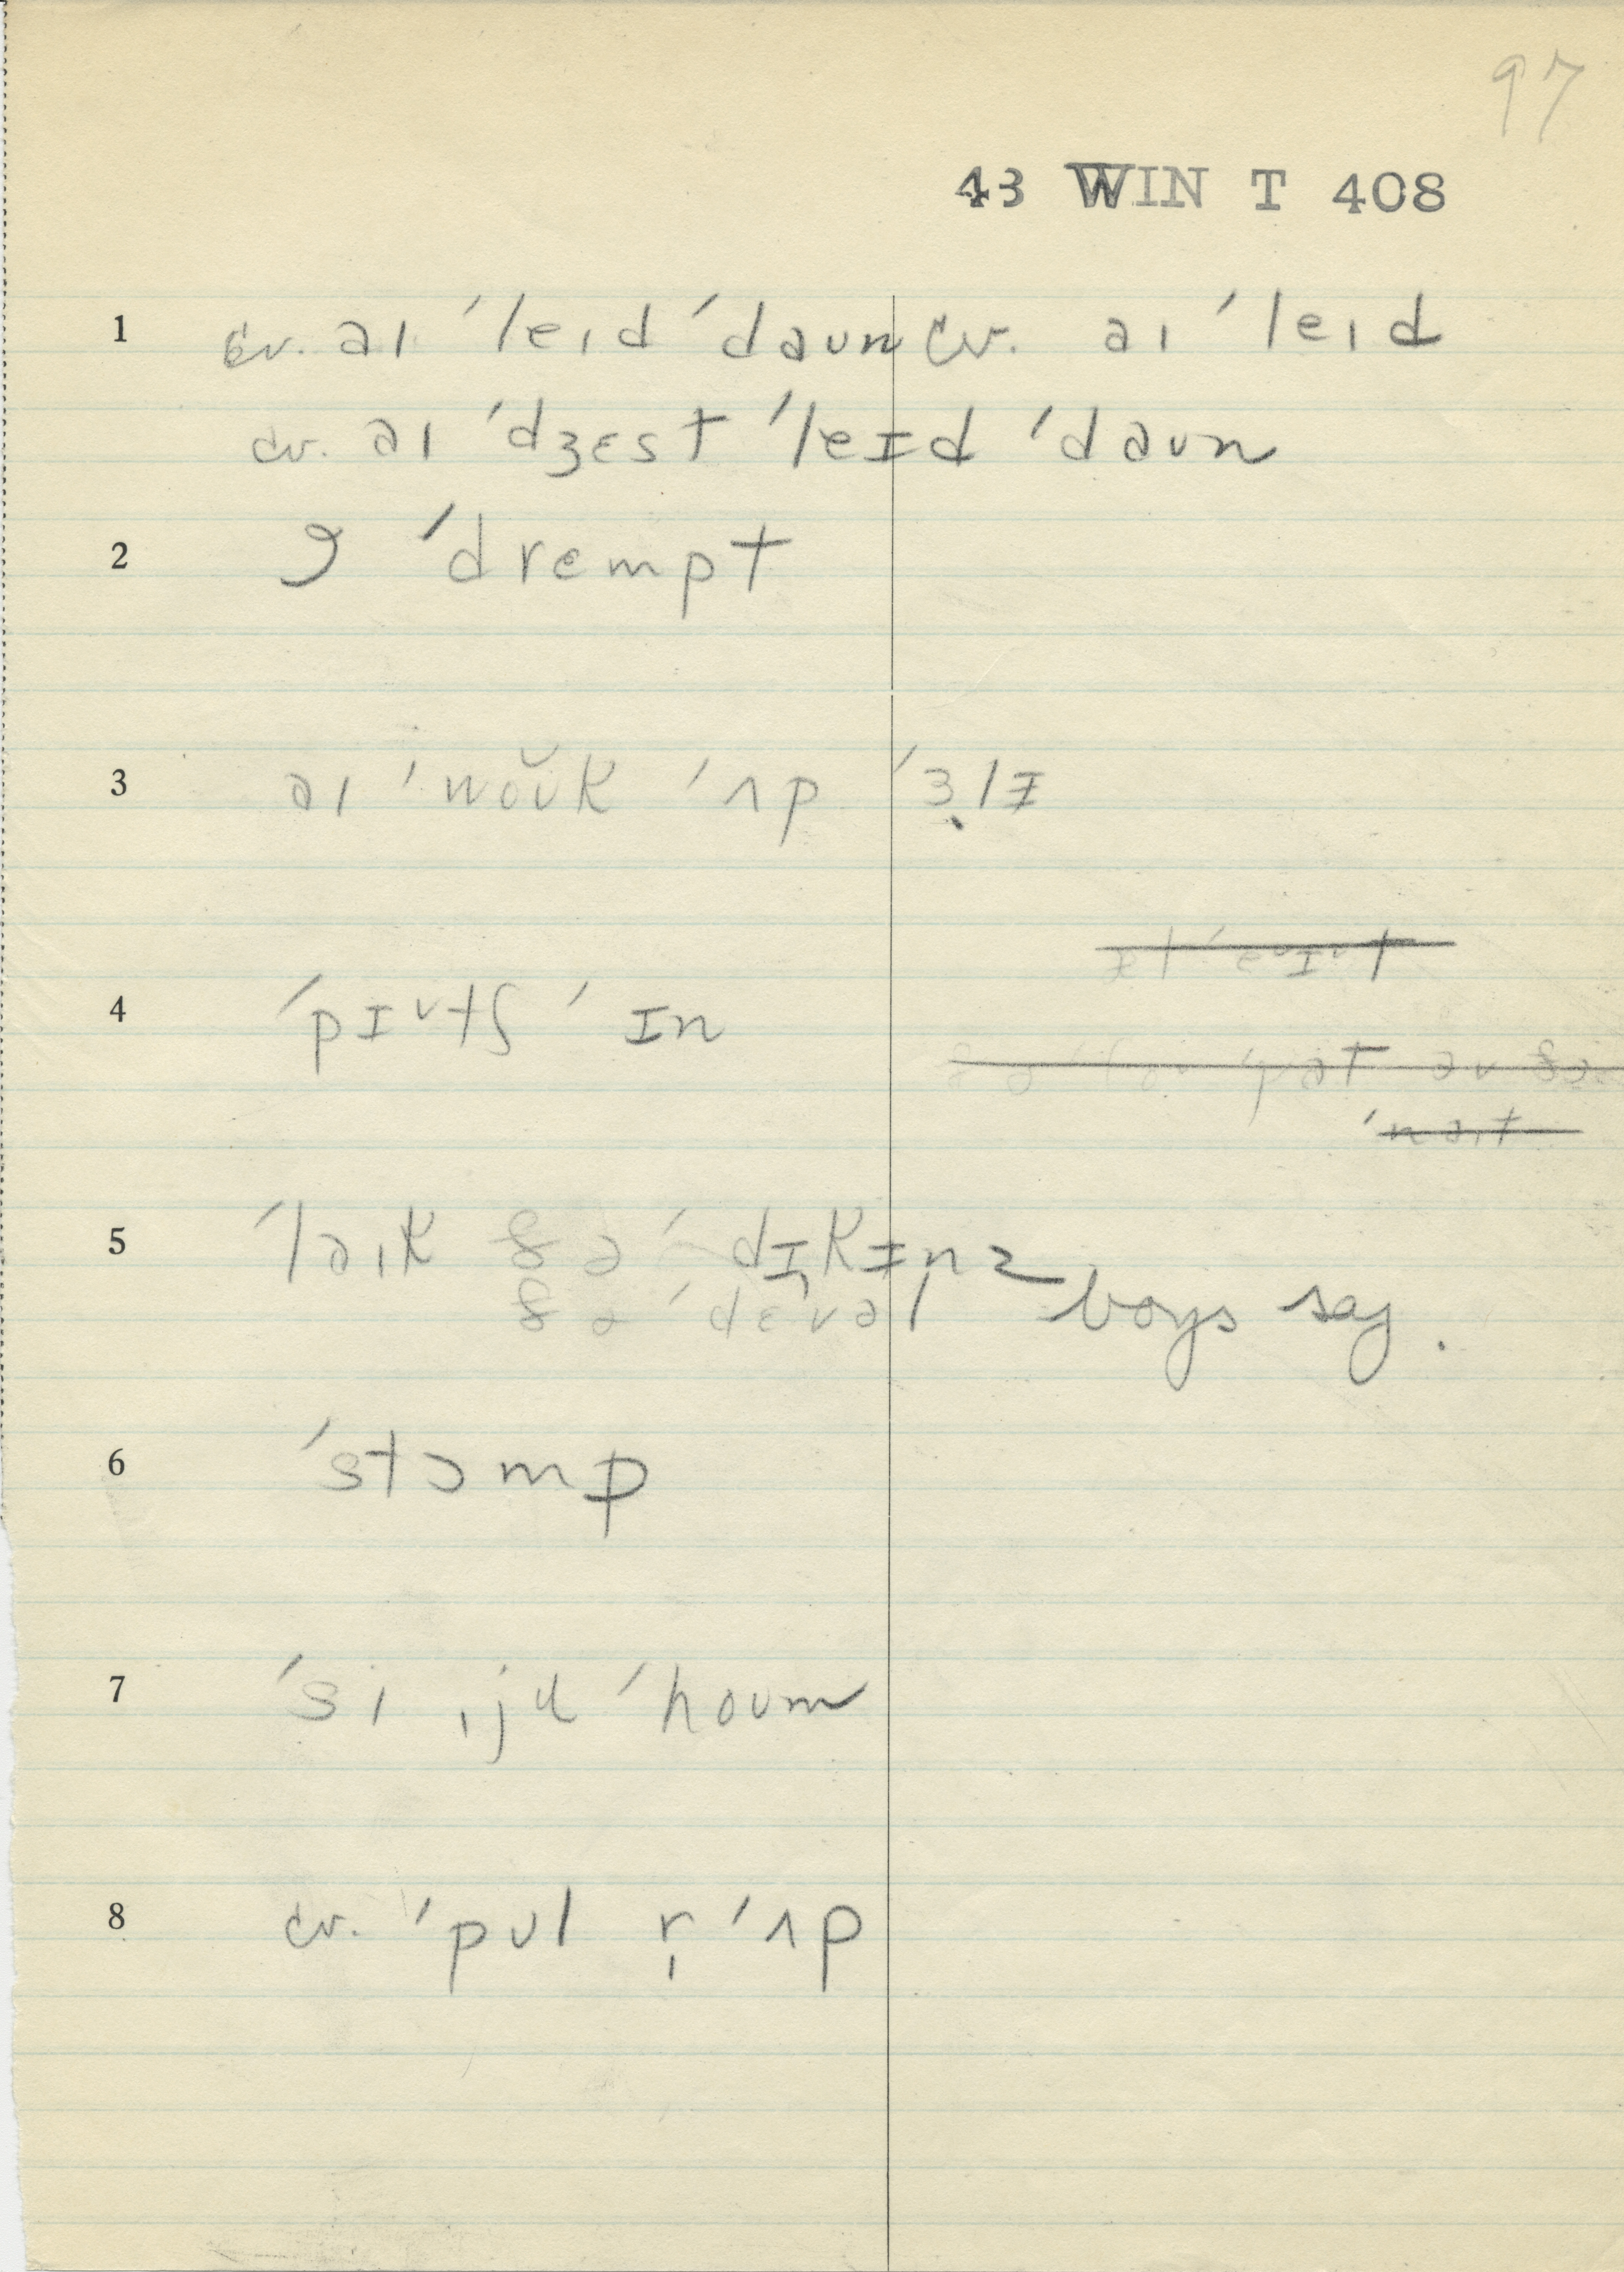 97
43 WIN T 408
1 cv. aɪ ˈleɪd ˈdaun cv. aɪ ˈleɪd
cv. aɪ ˈdʒɛst ˈleɪd ˈdaun
2 ˈdrempt
3 aɪ ˈwŏŭk ˈʌp ˈɜ̣lɪ
4 ˈpɪᵛtʃ ˈɪn
5 ˈləɪk ðə ˈdɪkɪnz
ðə ˈdɛvəl boys say.
6 ˈstɔmp
7 ˈsi ˌju ˈhoum
8 cv. ˈpul r̩ ˈʌp